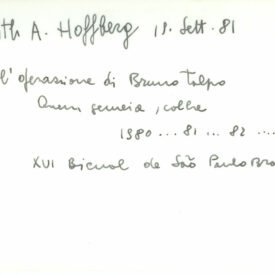 ith A. Hoffberg 19. Sett. 81
l'operazione di Bruno Talpo
Quem semeia, colhe
1980 ... 81 ... 82 ....
XVI Bienal de São Paulo Bra